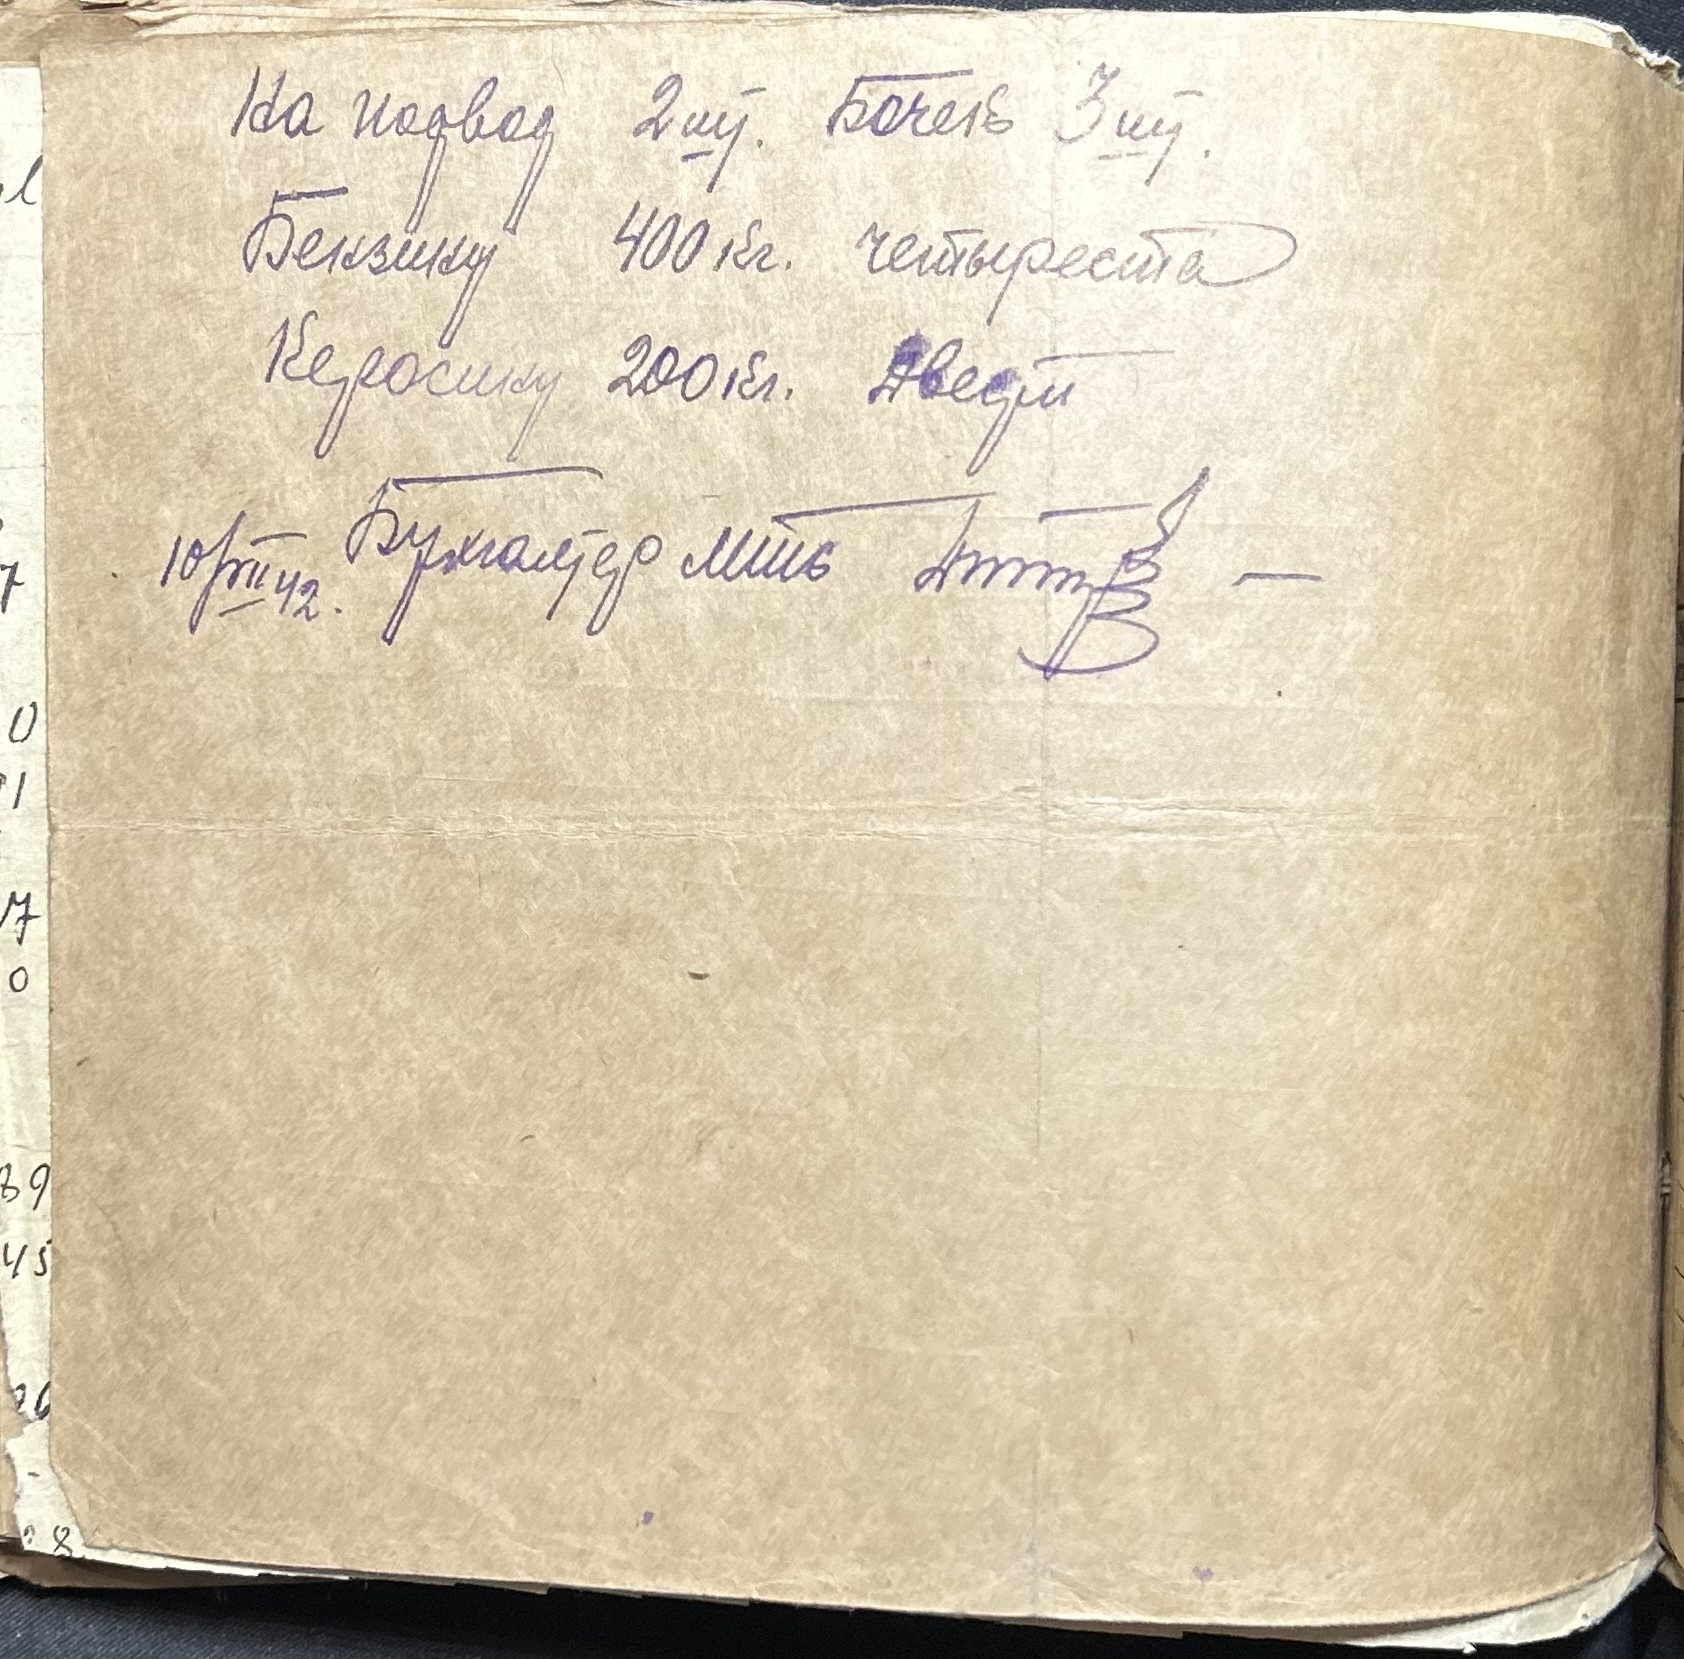 На подвод 2 шт. Бочек 3 шт.
Бензину 400 кг. четыреста
Керосину 200 кг. Двести
10/VII 42. Бухгалтер МТС
7
0
1
7
0
89
45
8